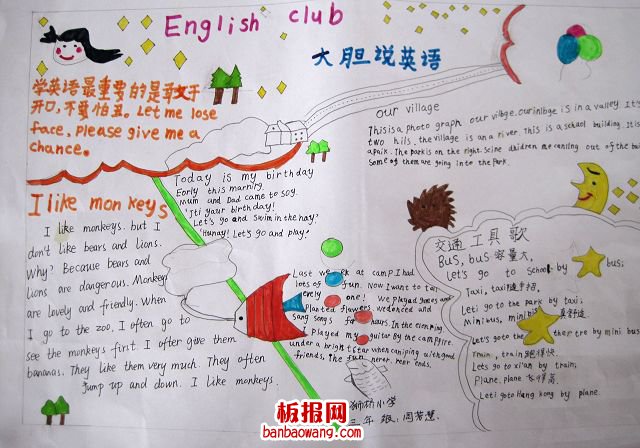 English club
大胆说英语
学英语最重要的是敢于
开口,不要怕丑。Let me lose
face, please give me a
chance.
I like monkeys
I like monkeys. but I
don't like bears and Lions.
Why? Because bears and
Lions are dangerous. Monkeys
are lovely and friendly. When
I go to the zoo, I often go to
see the monkeys first. I after give them
bananas. They like them very much. They often
jump up and down. I like monkeys.
Today is my birthday
Early this marning.
Mum and Dad came to say.
"Iti your birthday!
Let's go and swim in the
"Hunay! Let's go and play!
our village
This is a photo graph our is in a valley. It's
two hils. the village is an a river. This is a school building. It is
a paik. The park is on the right. Some are out of the bui
Some of them are going into the Park.
Last week at camp I had
lots of fun. Now I want to tell
one! We played games and
Planted flowers. we danced and
sang songs for hours. In the
I played my guitar by the campfire.
under a bright star when camping with good
friends, the fun never ends.
狮桥小学
三年级.周若慧
交通工具歌
BuS, buS 容量大,
Let's go to School by bus;
Taxi, taxi 随手招,
Leti go to the park by taxi;
Minibus, minibus 真舒适
Let's go to the theatre by mini bus
Train, train跑得快.
Lets go to xi'an by train,
Plane, plane 飞得高.
Leti goto Hong kong by plane.
板报网
banbaowang.com